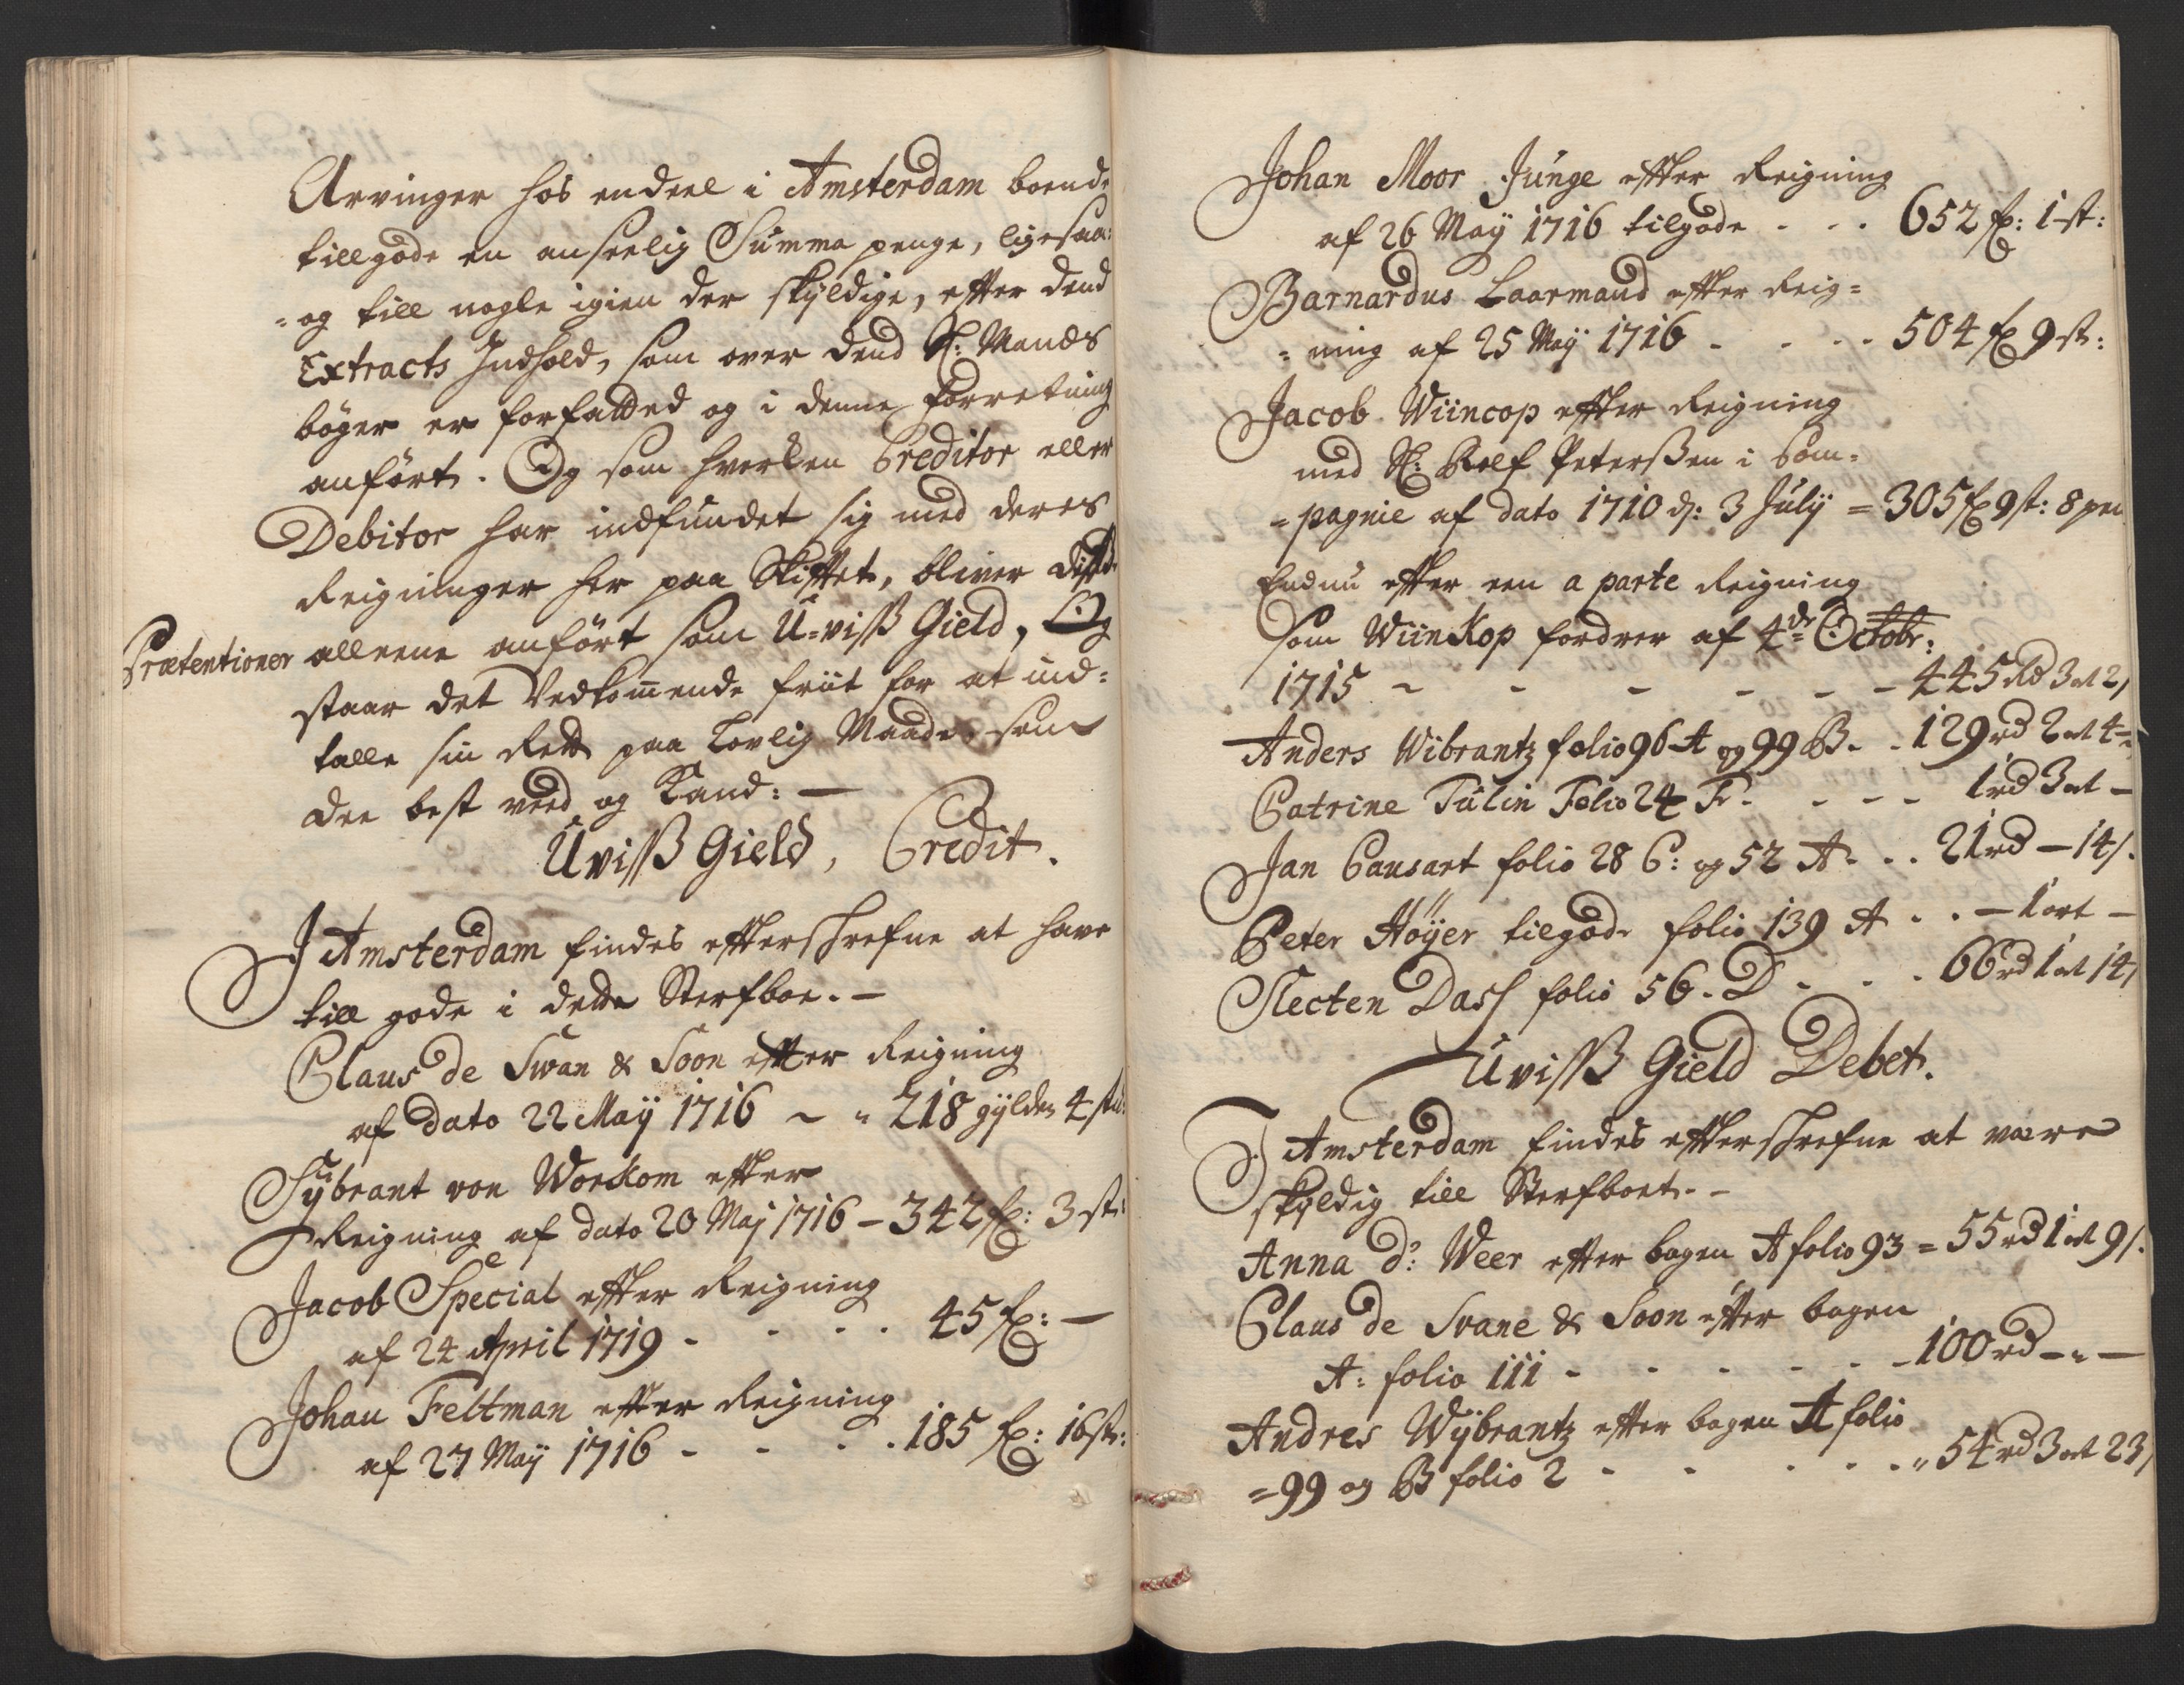 Arvinger hos endeel i Amsterdam boende
tillgode en anseelig Summa penge, ligesaa
=og till nogle igien der skÿldige, efter dend
Extracts Indhold, som over dend Sl: Mands
bøger er forfatted og i denne forretning
anført. Og som hverken Creditor eller
Debitor har indfundet sig med deres
Reigninger her paa Skifftet, bliver disse
Prætentioner alleene anført som U=viss Gield, Og
staar det Vedkommende friit for at ind=
talle sin Rett paa Lovlig Maade, som
dee best veed og Kand: —
Uviss Gield, Credit.
I Amsterdam findes effterskrefne at have
till gode i dette Sterfboe. —
Claus de Swan & Soon effter Reigning
af dato 22 Maÿ 1716 ~ " 218 gÿlden 4 st:
Sÿbrant von Workom effter
Reigning af dato 20 Maj 1716 – 342 fl: 3 st:
Jacob Special effter Reigning
af 24 April 1719 - - - - 45 fl: —
Johan Feltman effter Reigning
af 27 Maÿ 1716 - - - - 185 fl: 16 st:
Johan Moor Junge effter Reigning
af 26 Maÿ 1716 tilgode - - - 652 fl: 1 st:
Barnardus Laarmand effter Reig=
=ning af 25 Maÿ 1716 - - - - 504 fl 9 st:
Jacob Wiincop effter Reigning
med Sl: Rolf Peterssen i Com=
=pagnie af dato 1710 d: 3 Julÿ = 305 fl 9 st: 8 pen
Endnu effter een a parte Reigning
Som WiinKop fordrer af 4de Octobr:
1715 ~ - - - - - 445 Rd 3 ort 2 s
Anders Wibrantz folio 96 A og 99 B. - 129 rd 2 ort 4 s
Catrine Tulin Folio 24 F. - - - - 1 rd 3 ort –
Jan Causart folio 28 C: og 52 A. - - 21 rd – 14 s.
Peter Høÿer tilgode folio 139 A - - – 1 ort –
Slecten Dass folio 56. D - - - 66 rd 1 ort 14 s
Uviss Gield Debet.
I Amsterdam findes effterskrefne at være
skÿldig till Sterfboet. -
Anna d: Weer effter bogen A folio 93 = 55 rd 1 ort 9 s.
Claus de Svane & Soon effter bogen
A: folio 111 - - - - - - 100 rd – " —
Andres Wÿbrantz effter bogen A folio
=99 og B folio 2 - - - - - " 54 rd 3 ort 23 s